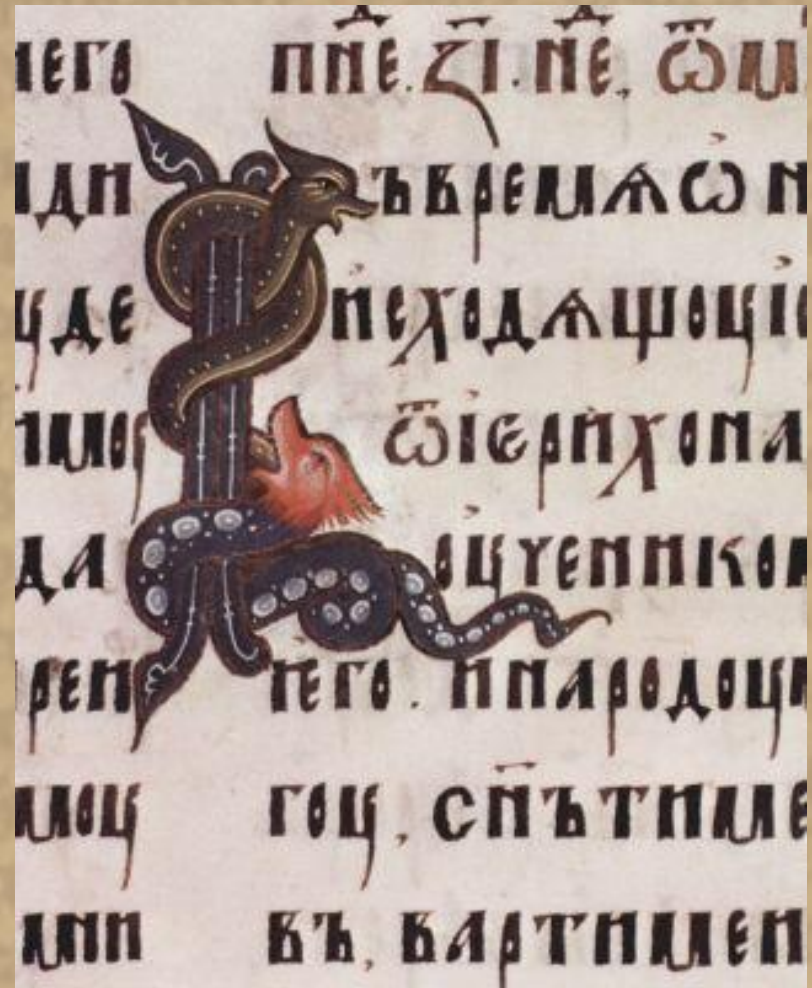 него
иди
да
рен
моу
мни
пн҃е. з҃і. н҃е, ѿ м
въвремѧѡн
исходѧщоуі
ѿіерихона
оученико
него. инародоу
гоу, сн҃ътиме
въ, вартимеи